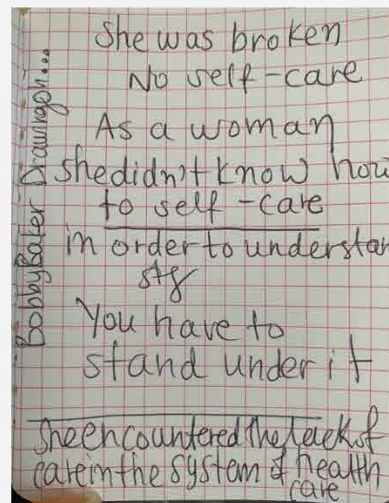 She was broken
No self-care
As a woman
she didn't know how
to self-care
in order to understan
stg
You have to
stand under it
She encountered the lack of
care in the system of health
care
Bobby Baker